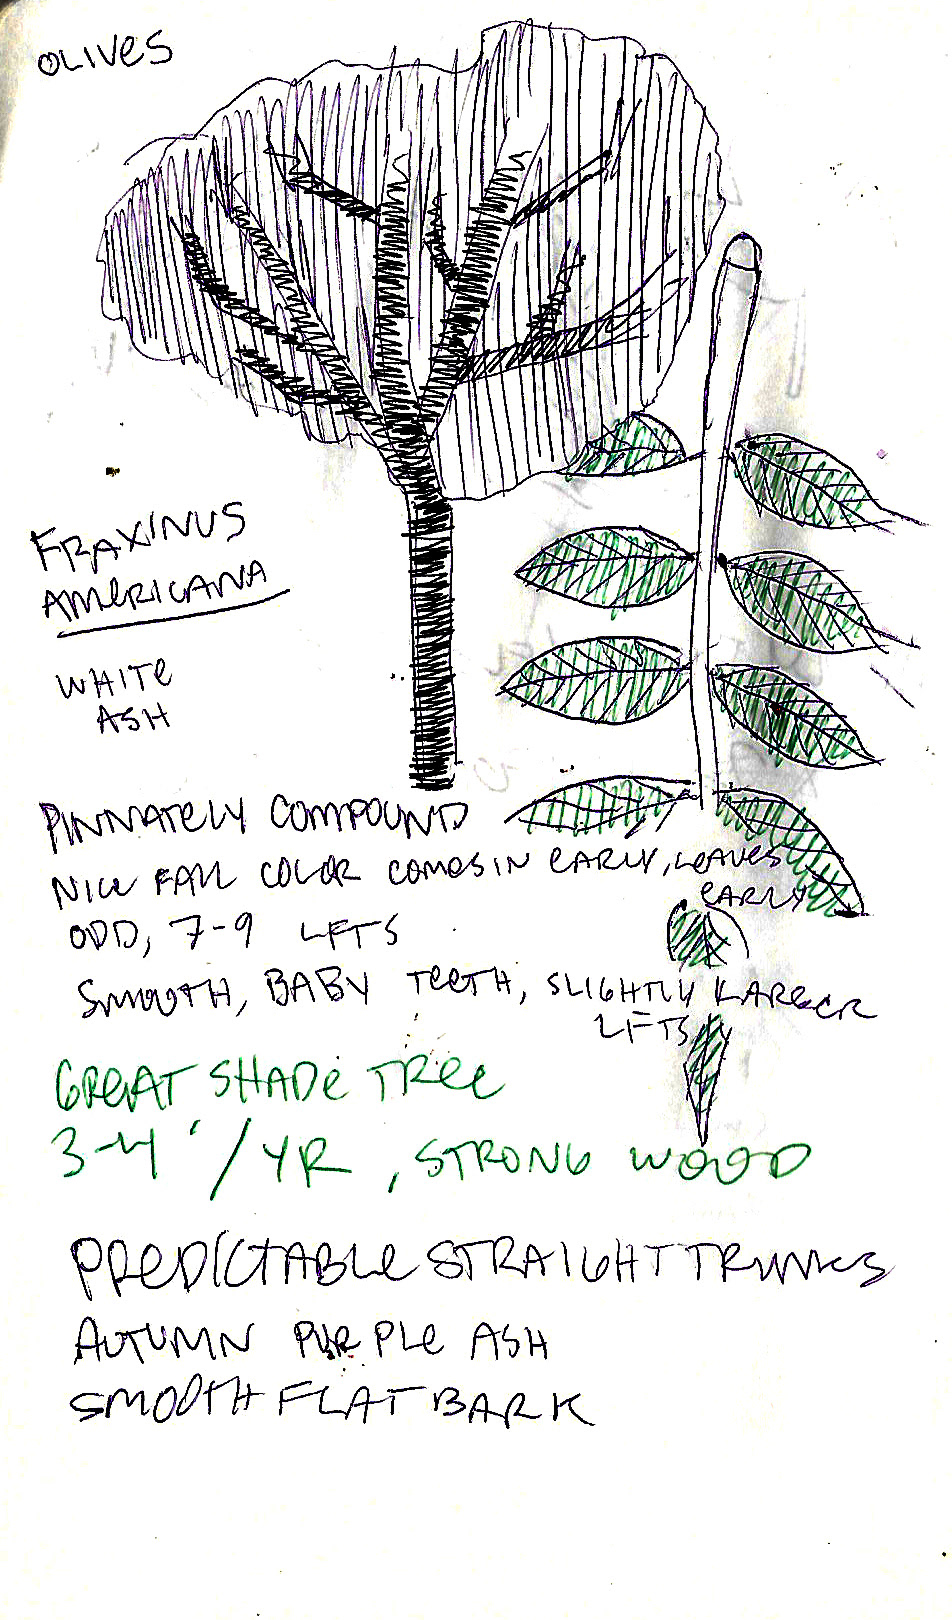 OLIVES
FRAXINUS
AMERICANA
WHITE
ASH
PINNATELY COMPOUND
NICE FALL COLOR COMES IN EARLY, LEAVES
EARLY
ODD, 7-9 LFTS
SMOOTH, BABY TEETH, SLIGHTLY LARGER
LFTS
GREAT SHADE TREE
3-4'/YR, STRONG WOOD
PREDICTABLE STRAIGHT TRUNKS
AUTUMN PURPLE ASH
SMOOTH FLAT BARK